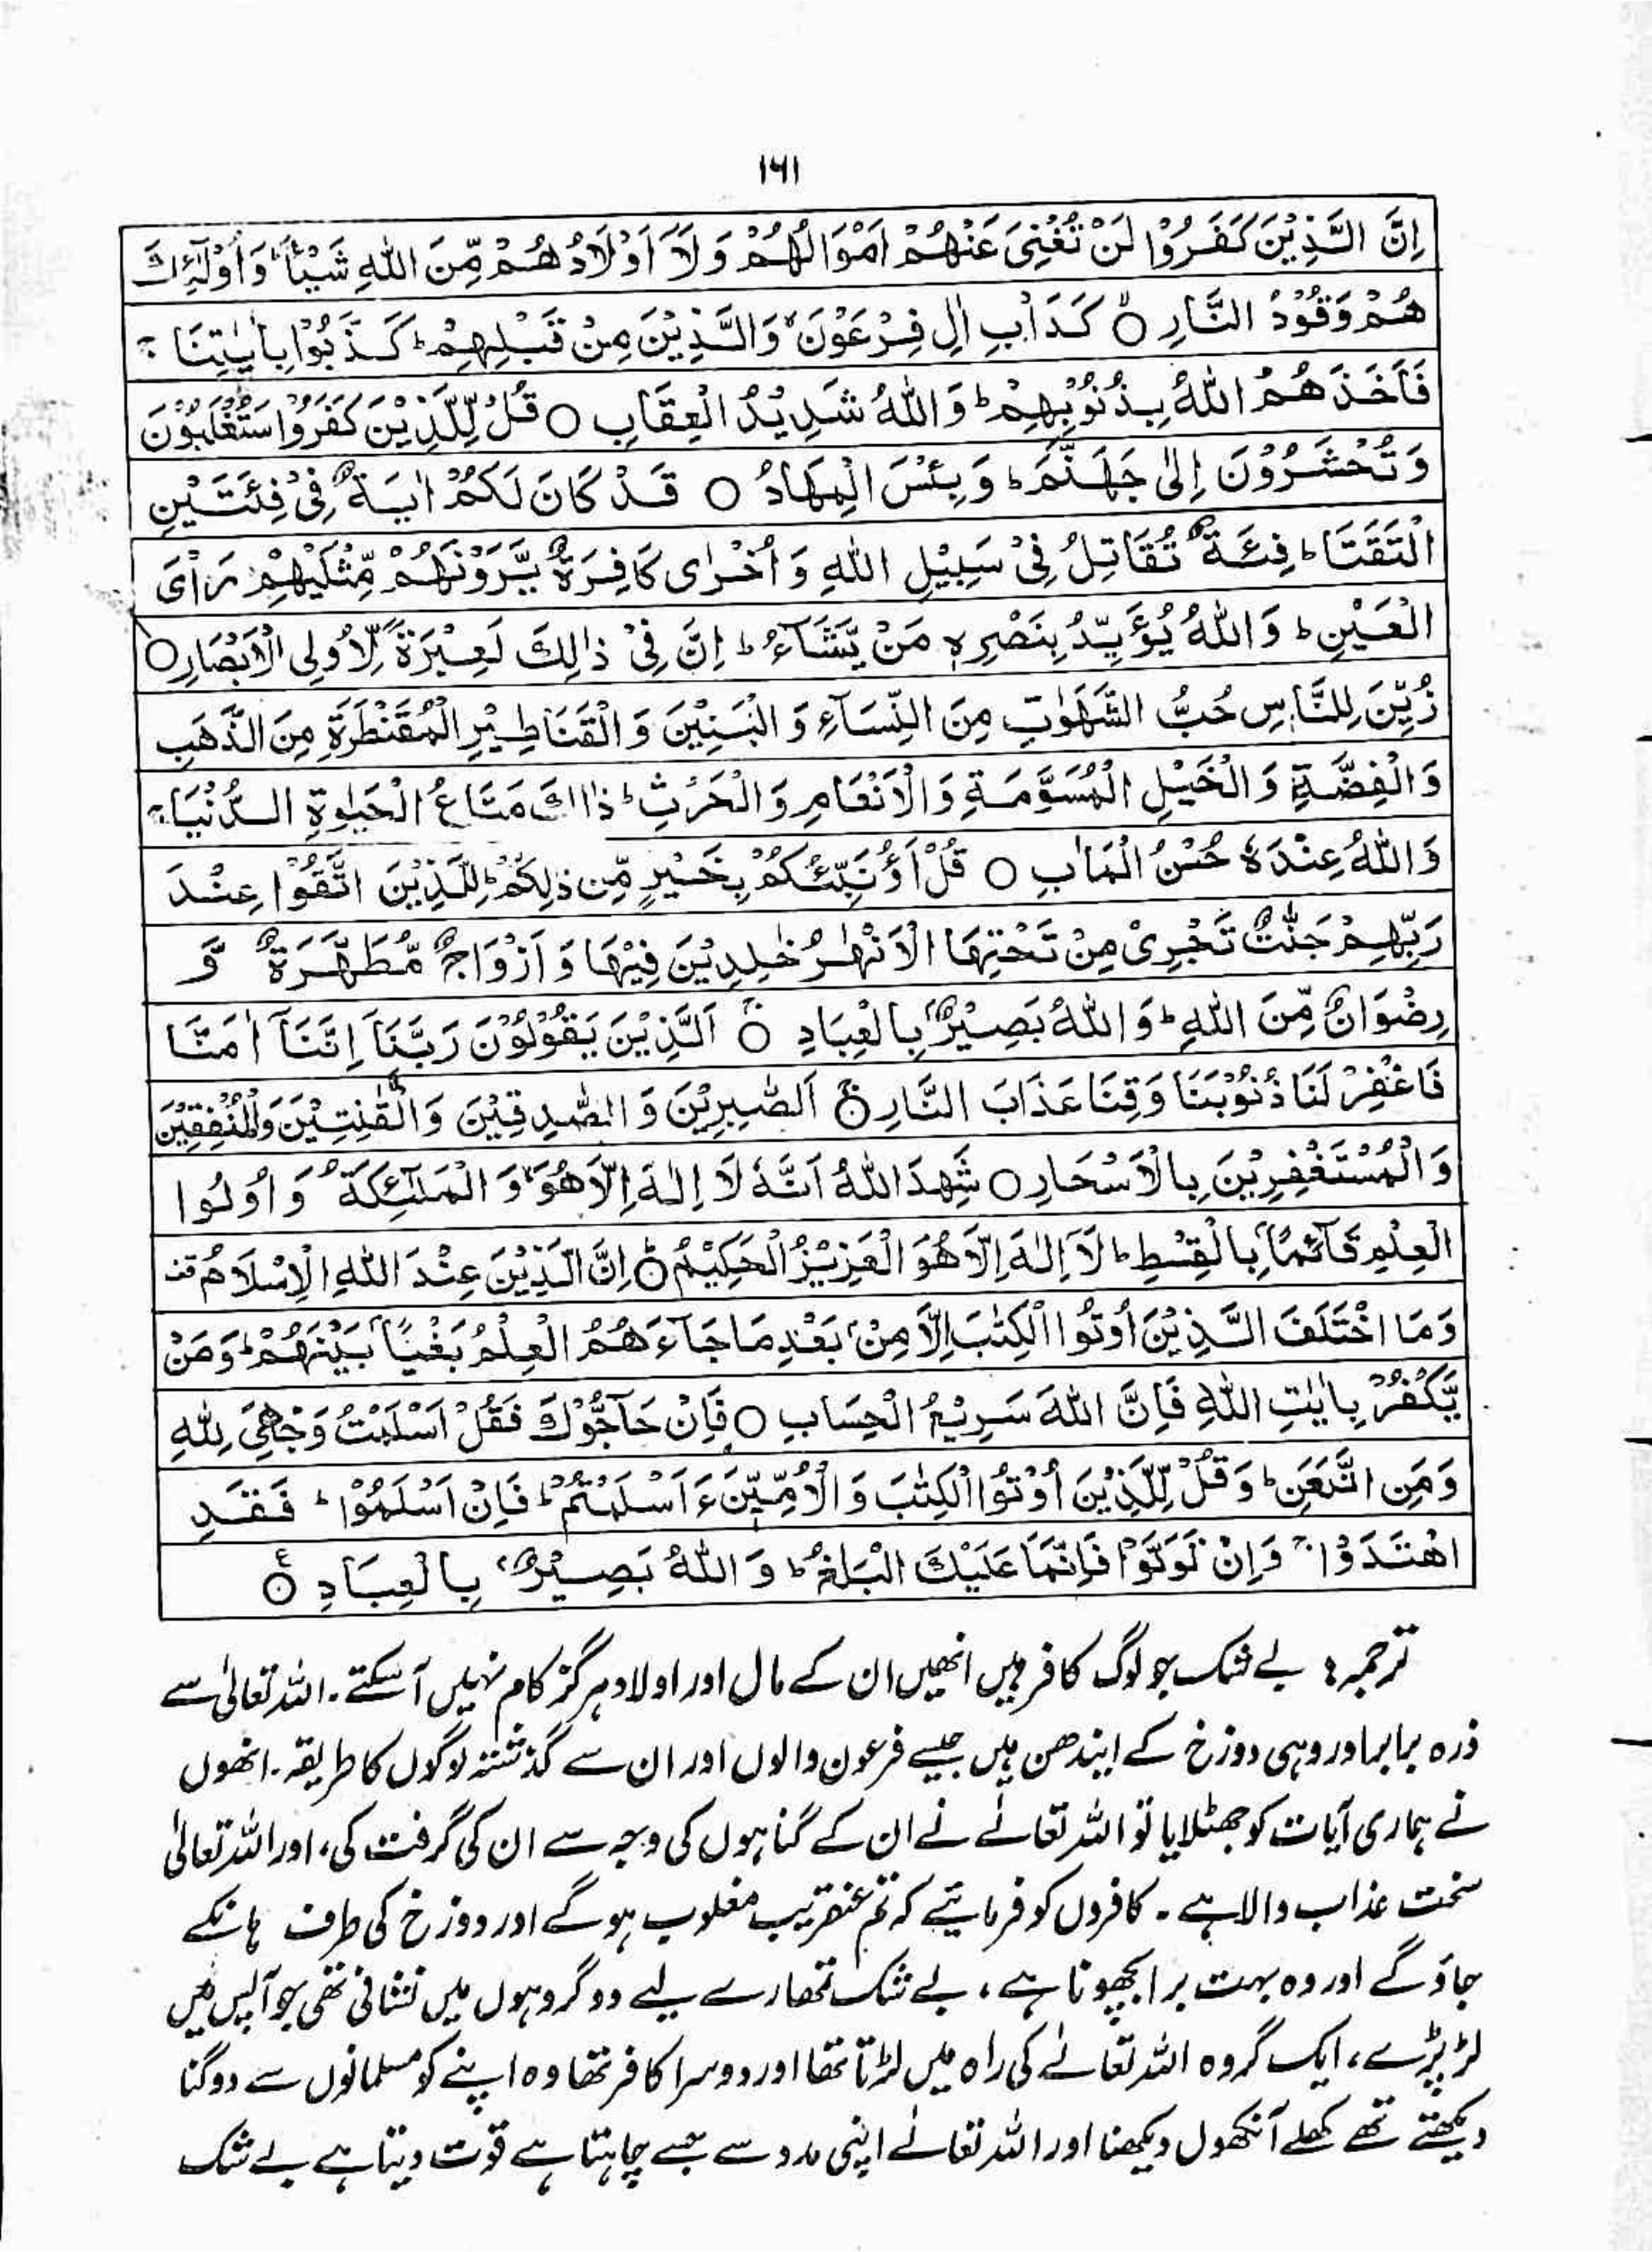 ۱۶۱
اِنَّ الَّذِيْنَ كَفَرُوْا لَنْ تُغْنِىَ عَنْهُمْ اَمْوَالُهُمْ وَلَآ اَوْلَادُهُمْ مِّنَ اللّٰهِ شَيْـًٔا ؕ وَاُولٰٓئِكَ
هُمْ وَقُوْدُ النَّارِ ۙ○ كَدَاْبِ اٰلِ فِرْعَوْنَ ۙ وَالَّذِيْنَ مِنْ قَبْلِهِمْ ؕ كَذَّبُوْا بِاٰيٰتِنَا ۚ
فَاَخَذَهُمُ اللّٰهُ بِذُنُوْبِهِمْ ؕ وَاللّٰهُ شَدِيْدُ الْعِقَابِ ○ قُلْ لِّلَّذِيْنَ كَفَرُوْا سَتُغْلَبُوْنَ
وَتُحْشَرُوْنَ اِلٰى جَهَنَّمَ ؕ وَبِئْسَ الْمِهَادُ ○ قَدْ كَانَ لَكُمْ اٰيَةٌ فِىْ فِئَتَيْنِ
الْتَقَتَا ؕ فِئَةٌ تُقَاتِلُ فِىْ سَبِيْلِ اللّٰهِ وَاُخْرٰى كَافِرَةٌ يَّرَوْنَهُمْ مِّثْلَيْهِمْ رَاْىَ
الْعَيْنِ ؕ وَاللّٰهُ يُؤَيِّدُ بِنَصْرِهٖ مَنْ يَّشَآءُ ؕ اِنَّ فِىْ ذٰالِكَ لَعِبْرَةً لِّاُولِى الْاَبْصَارِ ○
زُيِّنَ لِلنَّاسِ حُبُّ الشَّهَوٰتِ مِنَ النِّسَآءِ وَالْبَنِيْنَ وَالْقَنَاطِيْرِ الْمُقَنْطَرَةِ مِنَ الذَّهَبِ
وَالْفِضَّةِ وَالْخَيْلِ الْمُسَوَّمَةِ وَالْاَنْعَامِ وَالْحَرْثِ ؕ ذٰالكَ مَتَاعُ الْحَيٰوةِ الدُّنْيَا ۚ
وَاللّٰهُ عِنْدَهٗ حُسْنُ الْمَاٰبِ ○ قُلْ اَؤُنَبِّئُكُمْ بِخَيْرٍ مِّنْ ذٰلِكُمْ ؕ لِلَّذِيْنَ اتَّقَوْا عِنْدَ
رَبِّهِمْ جَنّٰتٌ تَجْرِىْ مِنْ تَحْتِهَا الْاَنْهٰرُ خٰلِدِيْنَ فِيْهَا وَاَزْوَاجٌ مُّطَهَّرَةٌ وَّ
رِضْوَانٌ مِّنَ اللّٰهِ ؕ وَاللّٰهُ بَصِيْرٌۢ بِالْعِبَادِ ۚ○ اَلَّذِيْنَ يَقُوْلُوْنَ رَبَّنَآ اِنَّنَآ اٰمَنَّا
فَاغْفِرْ لَنَا ذُنُوْبَنَا وَقِنَا عَذَابَ النَّارِ ۚ○ اَلصّٰبِرِيْنَ وَالصّٰدِقِيْنَ وَالْقٰنِتِيْنَ وَالْمُنْفِقِيْنَ
وَالْمُسْتَغْفِرِيْنَ بِالْاَسْحَارِ ○ شَهِدَ اللّٰهُ اَنَّهٗ لَا اِلٰهَ اِلَّا هُوَ ۙ وَالْمَلٰٓئِكَةُ وَاُولُوا
الْعِلْمِ قَآئِمًاۢ بِالْقِسْطِ ؕ لَآ اِلٰهَ اِلَّا هُوَ الْعَزِيْزُ الْحَكِيْمُ ؕ○ اِنَّ الدِّيْنَ عِنْدَ اللّٰهِ الْاِسْلَامُ
وَمَا اخْتَلَفَ الَّذِيْنَ اُوْتُوا الْكِتٰبَ اِلَّا مِنْۢ بَعْدِ مَا جَآءَهُمُ الْعِلْمُ بَغْيًاۢ بَيْنَهُمْ ؕ وَمَنْ
يَّكْفُرْ بِاٰيٰتِ اللّٰهِ فَاِنَّ اللّٰهَ سَرِيْعُ الْحِسَابِ ○ فَاِنْ حَآجُّوْكَ فَقُلْ اَسْلَمْتُ وَجْهِىَ لِلّٰهِ
وَمَنِ اتَّبَعَنِ ؕ وَقُلْ لِّلَّذِيْنَ اُوْتُوا الْكِتٰبَ وَالْاُمِّيّٖنَ ءَاَسْلَمْتُمْ ؕ فَاِنْ اَسْلَمُوْا ؕ فَقَدِ
اهْتَدَوْا ۚ وَاِنْ تَوَلَّوْا فَاِنَّمَا عَلَيْكَ الْبَلٰغُ ؕ وَاللّٰهُ بَصِيْرٌۢ بِالْعِبَادِ ○
ترجمہ: بے شک جو لوگ کافر ہیں انھیں ان کے مال اور اولاد ہرگز کام نہیں آسکتے۔ اللہ تعالیٰ سے
ذرہ برابر اور وہی دوزخ کے ایندھن ہیں جیسے فرعون والوں اور ان سے گذشتہ لوگوں کا طریقہ۔ انھوں
نے ہماری آیات کو جھٹلایا تو اللہ تعالٰے نے ان کے گناہوں کی وجہ سے ان کی گرفت کی، اور اللہ تعالیٰ
سخت عذاب والا ہے۔ کافروں کو فرمائیے کہ تم عنقریب مغلوب ہوگے اور دوزخ کی طرف ہانکے
جاؤگے اور وہ بہت برا بچھونا ہے، بے شک تمھارے لیے دو گروہوں میں نشانی تھی جو آپس میں
لڑ پڑے، ایک گروہ اللہ تعالٰے کی راہ میں لڑتا تھا اور دوسرا کافر تھا وہ اپنے کو مسلمانوں سے دوگنا
دیکھتے تھے کھلے آنکھوں دیکھنا اور اللہ تعالٰے اپنی مدد سے جسے چاہتا ہے قوت دیتا ہے بے شک